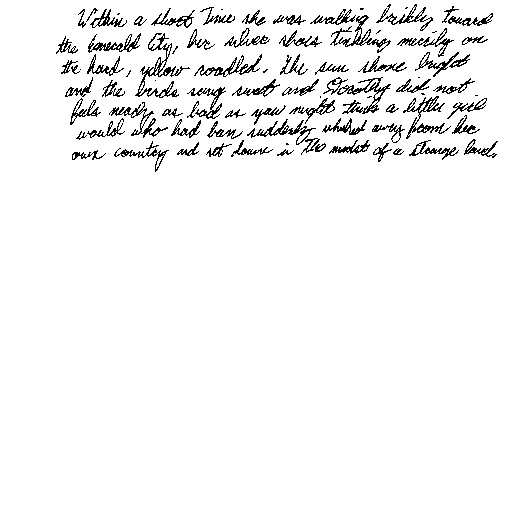 Within a short time she was walking briskly toward
the Emerald City, her silver shoes tinkling merrily on
the hard, yellow roadbed. The sun shone bright
and the birds sang sweet and Dorothy did not
feel nearly as bad as you might think a little girl
would who had been suddenly whisked away from her
own country and set down in the midst of a strange land.